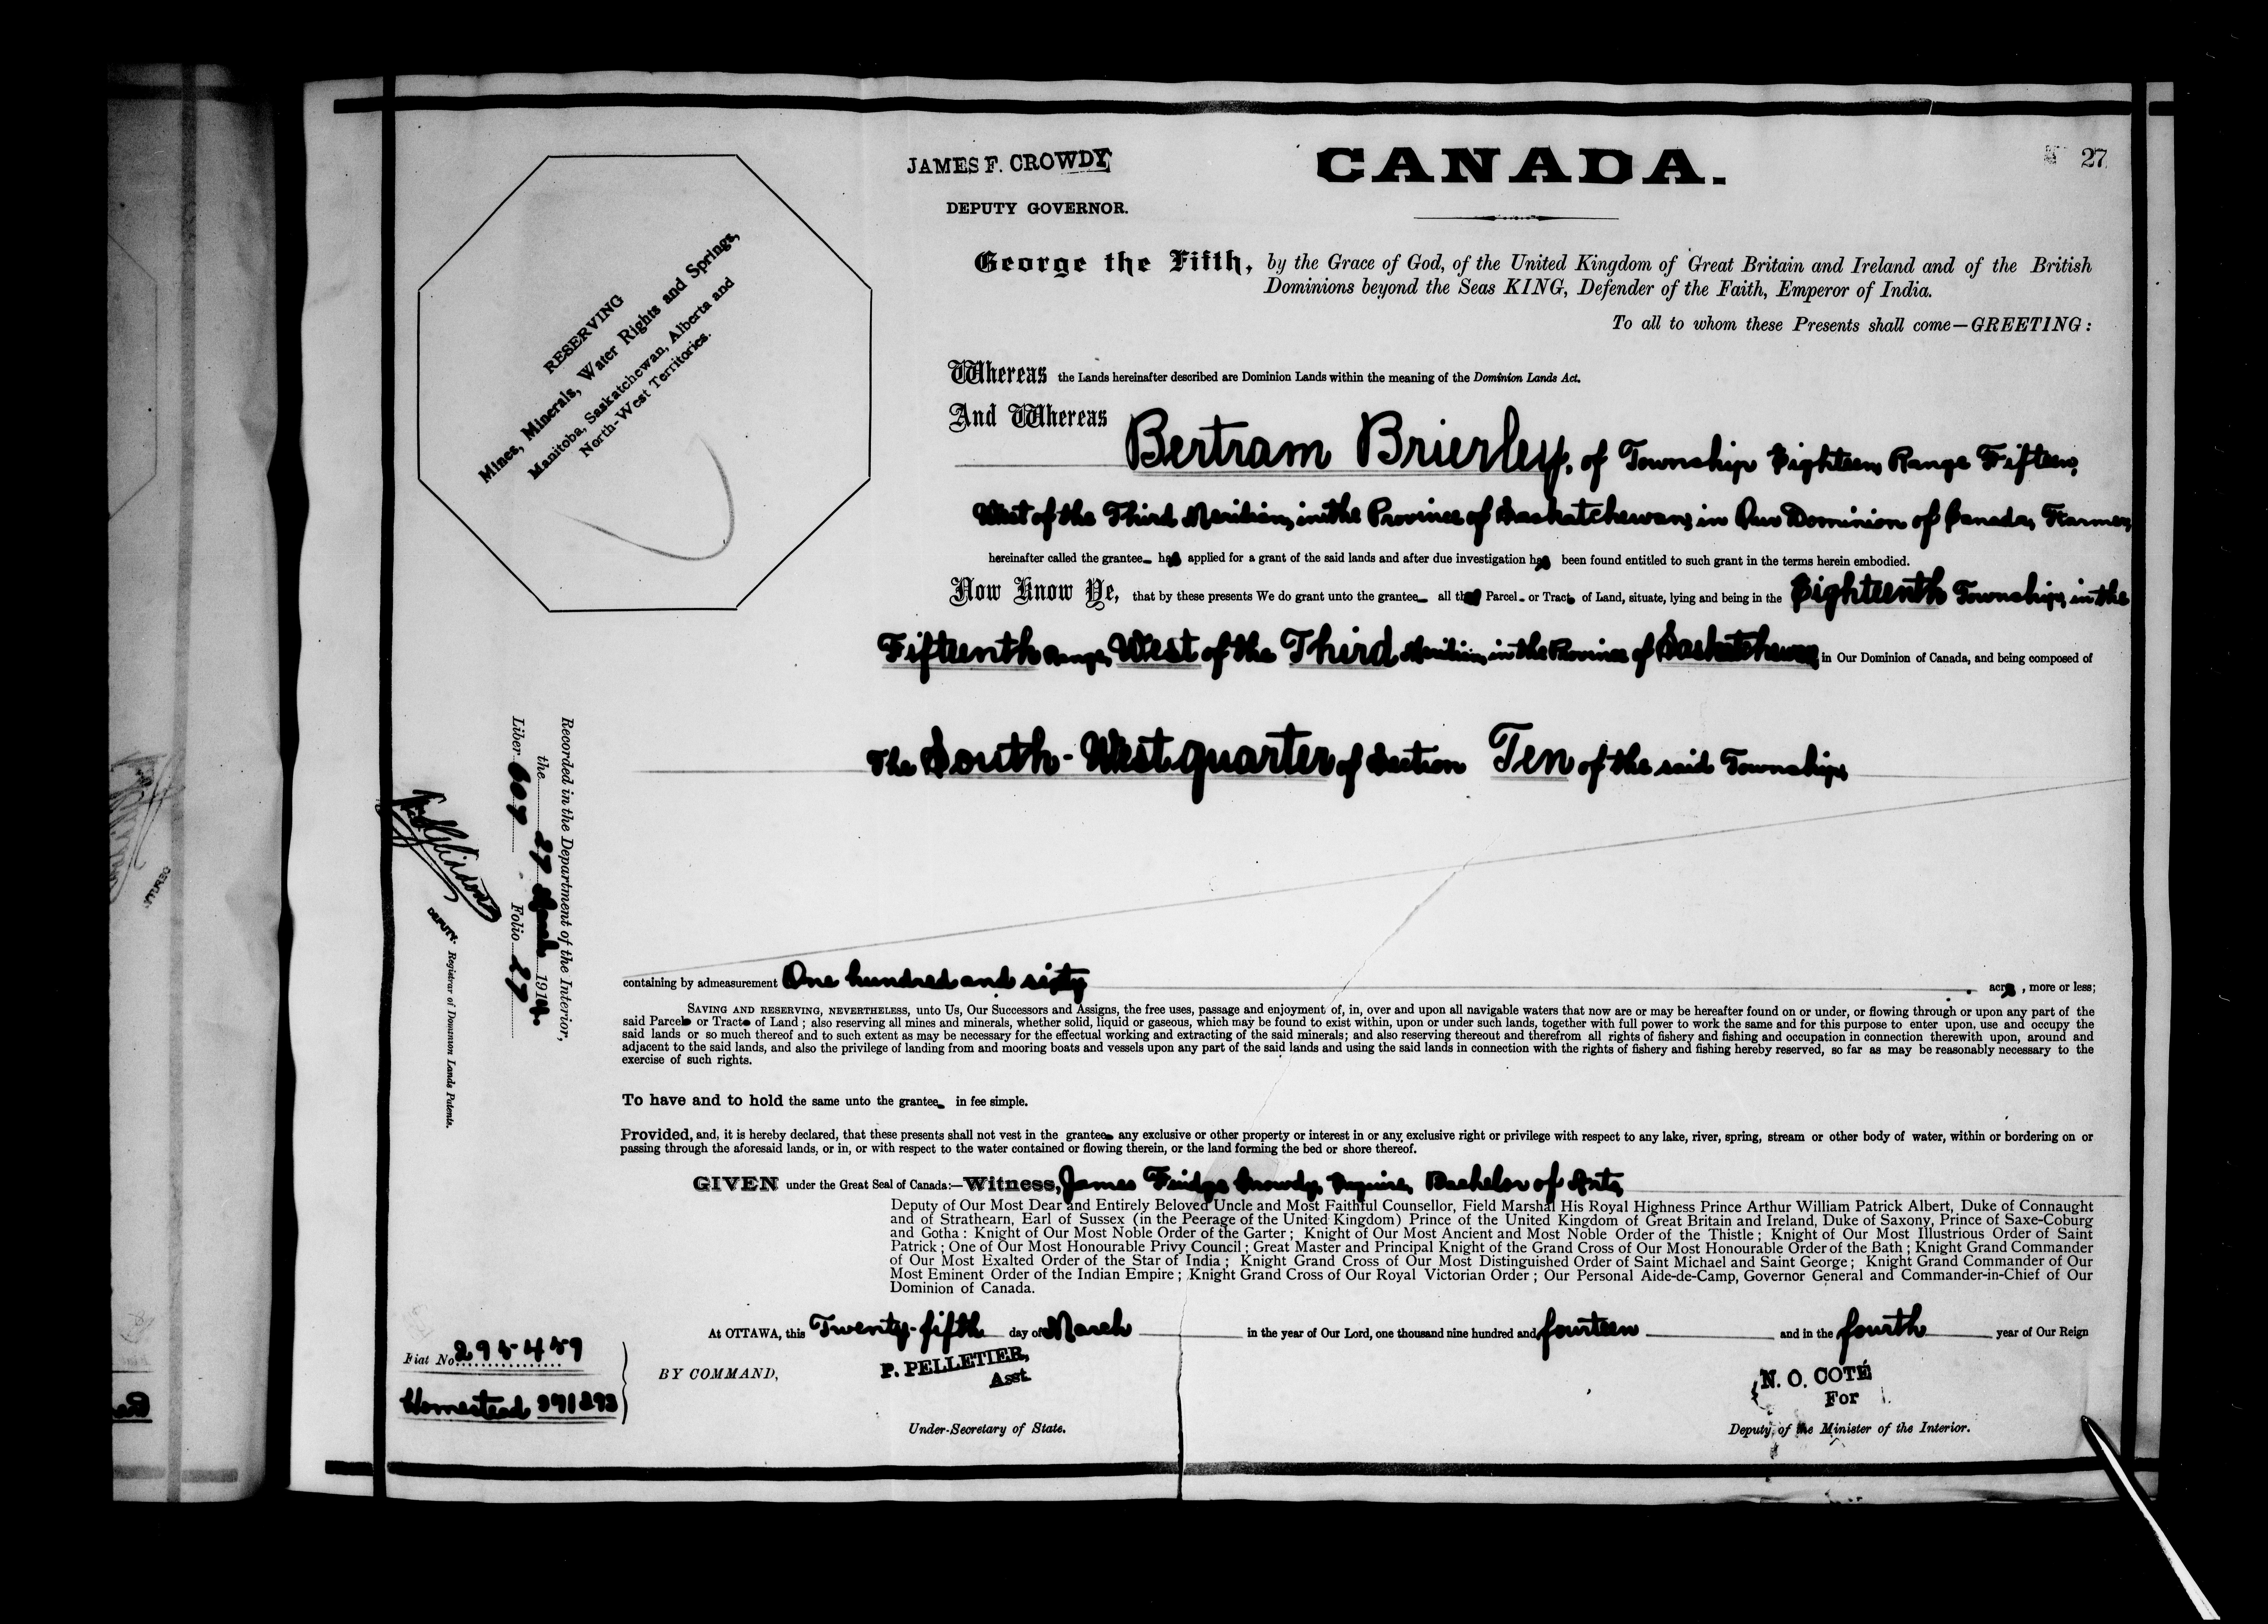 JAMES F. CROWDY
DEPUTY GOVERNOR.
CANADA.
27
RESERVING
Mines, Minerals, Water Rights and Springs,
Manitoba, Saskatchewan, Alberta and
North-West Territories.
George the Fifth, by the Grace of God, of the United Kingdom of Great Britain and Ireland and of the British
Dominions beyond the Seas KING, Defender of the Faith, Emperor of India.
To all to whom these Presents shall come—GREETING:
Whereas the Lands hereinafter described are Dominion Lands within the meaning of the Dominion Lands Act.
And Whereas Bertram Brierley, of Township Eighteen, Range Fifteen,
West of the Third Meridian, in the Province of Saskatchewan, in Our Dominion of Canada, Farmer,
hereinafter called the grantee has applied for a grant of the said lands and after due investigation has been found entitled to such grant in the terms herein embodied.
Now Know Ye, that by these presents We do grant unto the grantee all that Parcel or Tract of Land, situate, lying and being in the Eighteenth Township, in the
Fifteenth Range, West of the Third Meridian, in the Province of Saskatchewan, in Our Dominion of Canada, and being composed of
The South-West quarter of Section Ten of the said Township
containing by admeasurement One hundred and sixty acres, more or less;
SAVING AND RESERVING, NEVERTHELESS, unto Us, Our Successors and Assigns, the free uses, passage and enjoyment of, in, over and upon all navigable waters that now are or may be hereafter found on or under, or flowing through or upon any part of the
said Parcel or Tract of Land; also reserving all mines and minerals, whether solid, liquid or gaseous, which may be found to exist within, upon or under such lands, together with full power to work the same and for this purpose to enter upon, use and occupy the
said lands or so much thereof and to such extent as may be necessary for the effectual working and extracting of the said minerals; and also reserving thereout and therefrom all rights of fishery and fishing and occupation in connection therewith upon, around and
adjacent to the said lands, and also the privilege of landing from and mooring boats and vessels upon any part of the said lands and using the said lands in connection with the rights of fishery and fishing hereby reserved, so far as may be reasonably necessary to the
exercise of such rights.
To have and to hold the same unto the grantee in fee simple.
Provided, and, it is hereby declared, that these presents shall not vest in the grantee any exclusive or other property or interest in or any exclusive right or privilege with respect to any lake, river, spring, stream or other body of water, within or bordering on or
passing through the aforesaid lands, or in, or with respect to the water contained or flowing therein, or the land forming the bed or shore thereof.
GIVEN under the Great Seal of Canada:—Witness, James Fridge Crowdy, Esquire, Bachelor of Arts,
Deputy of Our Most Dear and Entirely Beloved Uncle and Most Faithful Counsellor, Field Marshal His Royal Highness Prince Arthur William Patrick Albert, Duke of Connaught
and of Strathearn, Earl of Sussex (in the Peerage of the United Kingdom) Prince of the United Kingdom of Great Britain and Ireland, Duke of Saxony, Prince of Saxe-Coburg
and Gotha: Knight of Our Most Noble Order of the Garter; Knight of Our Most Ancient and Most Noble Order of the Thistle; Knight of Our Most Illustrious Order of Saint
Patrick; One of Our Most Honourable Privy Council; Great Master and Principal Knight of the Grand Cross of Our Most Honourable Order of the Bath; Knight Grand Commander
of Our Most Exalted Order of the Star of India; Knight Grand Cross of Our Most Distinguished Order of Saint Michael and Saint George; Knight Grand Commander of Our
Most Eminent Order of the Indian Empire; Knight Grand Cross of Our Royal Victorian Order; Our Personal Aide-de-Camp, Governor General and Commander-in-Chief of Our
Dominion of Canada.
At OTTAWA, this Twenty-fifth day of March in the year of Our Lord, one thousand nine hundred and fourteen and in the fourth year of Our Reign
BY COMMAND,
P. PELLETIER,
Asst.
Under-Secretary of State.
N. O. COTÉ
For
Deputy of the Minister of the Interior.
Recorded in the Department of the Interior,
the 27 March 1914.
Liber 607 Folio 27
DEPUTY. Registrar of Dominion Lands Patents.
Fiat No 295459
Homestead 391893